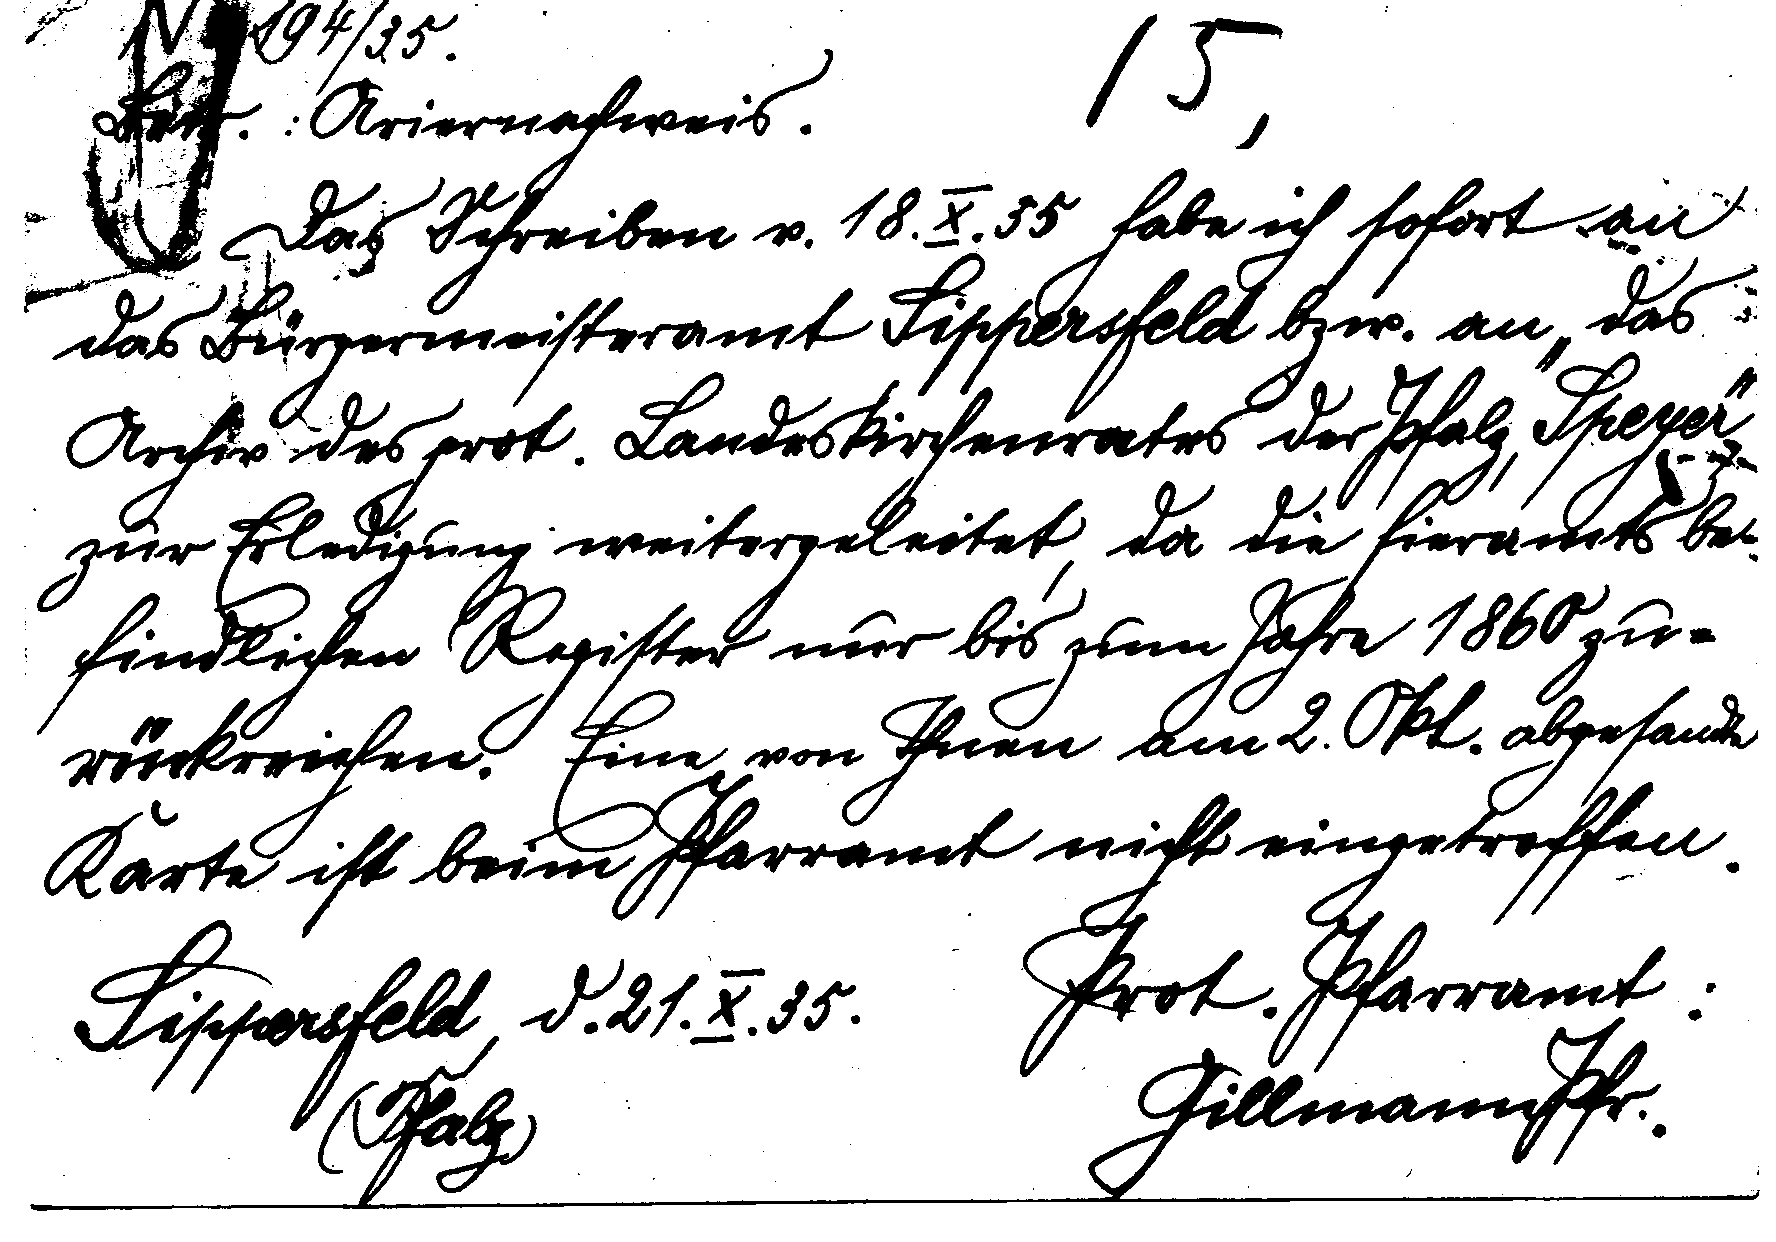 N 194/35. 15,
Betr. : Ariernachweis.
Das Schreiben v. 18.X.35 habe ich sofort an
das Bürgermeisteramt Sippersfeld bzw. an „das
Archiv des prot. Landeskirchenrates der Pfalz, Speyer"
zur Erledigung weitergeleitet, da die hieramts be-
findlichen Register nur bis zum Jahre 1860 zu-
rückreichen. Eine von Ihnen am 2. Okt. abgesandte
Karte ist beim Pfarramt nicht eingetroffen.
Sippersfeld, d. 21.X.35. Prot. Pfarramt :
(Pfalz) Gillmann Pfr.